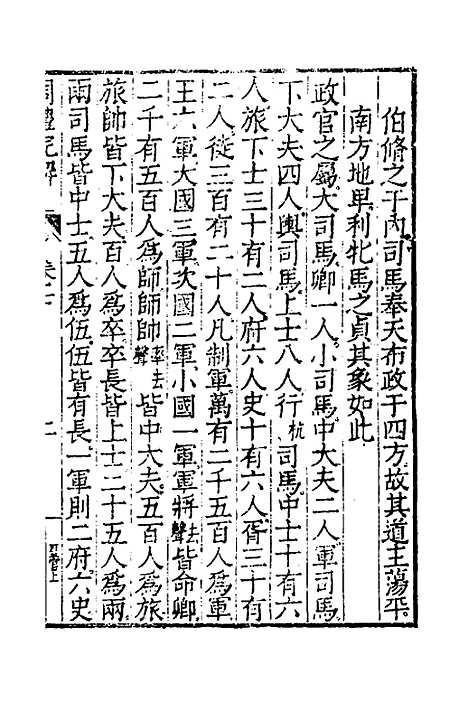 伯脩之于內司馬奉天布政于四方故其道主蕩平
南方地早利牝馬之貞其象如此
政官之屬大司馬卿一人小司馬中大夫二人軍司馬
下大夫四人輿司馬上士八人行杭司馬中士十有六
人旅下士三十有二人府六人史十有六人胥三十有
二人徒三百有二十人凡制軍萬有二千五百人爲軍
王六軍大國三軍次國二軍小國一軍軍將去聲皆命卿
二千有五百人爲師師帥率去聲皆中大夫五百人爲旅
旅帥皆下大夫百人爲卒卒長皆上士二十五人爲兩
兩司馬皆中士五人爲伍伍皆有長一軍則二府六史
周禮完解
卷七
二